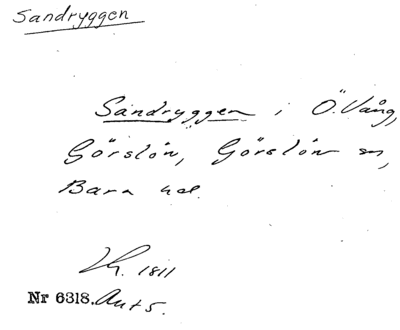 Sandryggen
Sandryggen i Ö. Vång,
Görslöv, Görslöv sn,
Bara hd.
1811
Nr 6318. Ant 5.